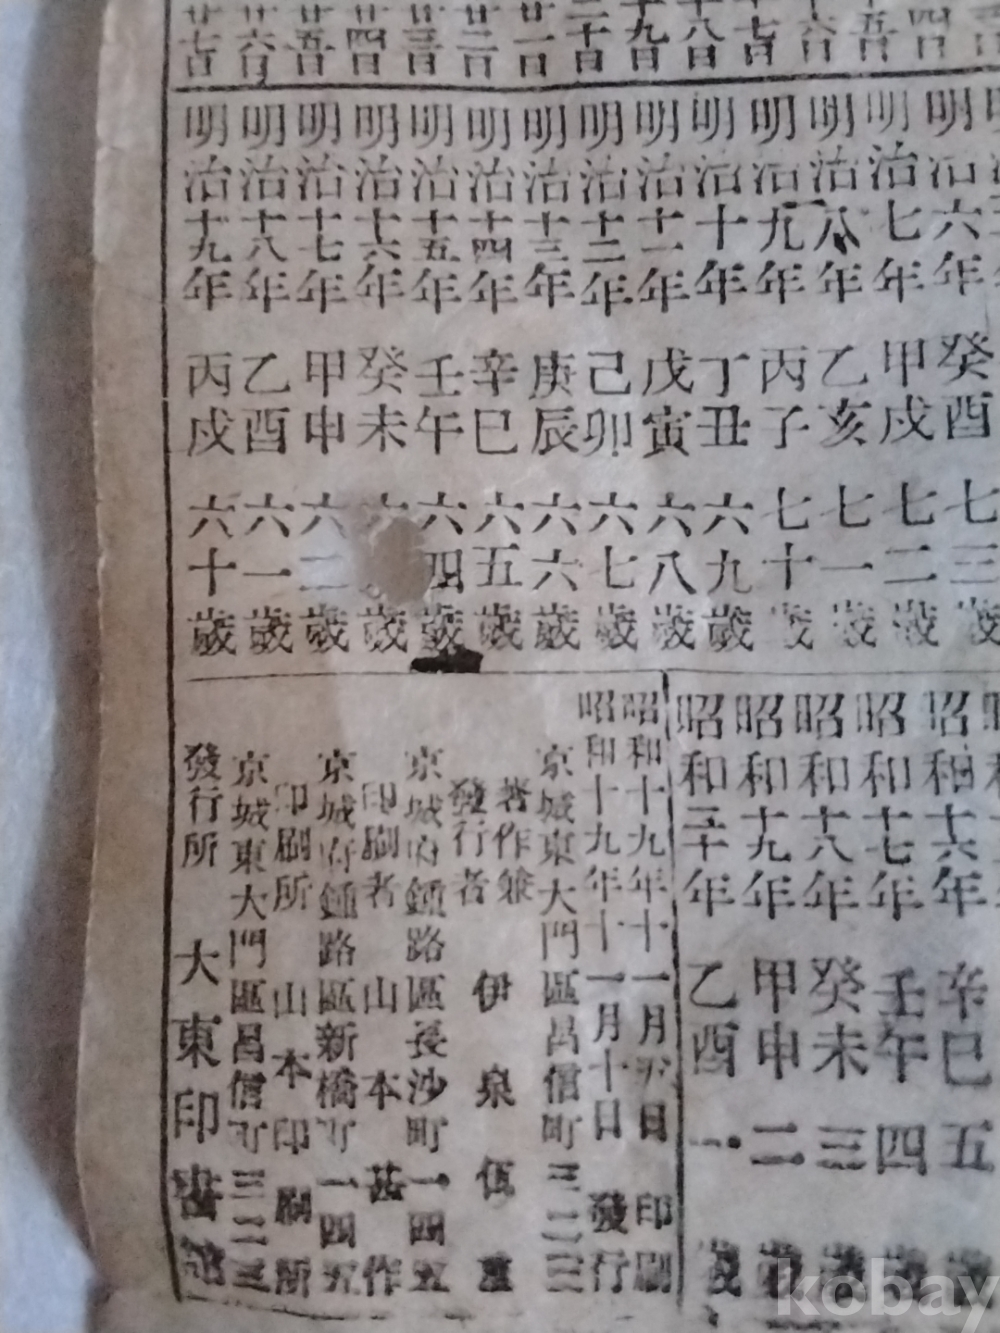 四日
十五日
十六日
十七日
十八日
十九日
二十日
廿一日
廿二日
廿三日
廿四日
廿五日
廿六日
廿七日
明治六年 癸酉 七三歲
明治七年 甲戌 七二歲
明治八年 乙亥 七一歲
明治九年 丙子 七十歲
明治十年 丁丑 六九歲
明治十一年 戊寅 六八歲
明治十二年 己卯 六七歲
明治十三年 庚辰 六六歲
明治十四年 辛巳 六五歲
明治十五年 壬午 六四歲
明治十六年 癸未 六 歲
明治十七年 甲申 六二歲
明治十八年 乙酉 六一歲
明治十九年 丙戌 六十歲
昭和十六年 辛巳 五歲
昭和十七年 壬午 四歲
昭和十八年 癸未 三歲
昭和十九年 甲申 二歲
昭和二十年 乙酉 一歲
昭和十九年十一月 日 印刷
昭和十九年十一月十日 發行
京城東大門區昌信町三二三
著作兼
發行者 伊泉 重
京城府鍾路區長沙町一四五
印刷者 山本甚作
京城府鍾路區新橋町一四五
印刷所 山本印刷所
京城東大門區昌信町三二三
發行所 大東印書館
kobay